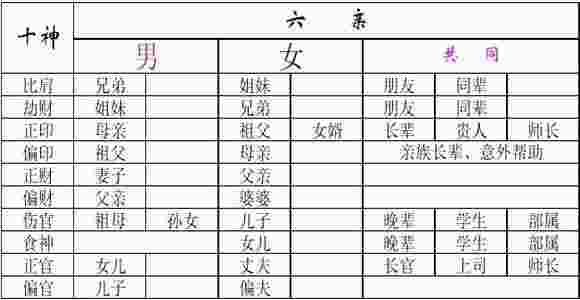 十神 六 亲
男 女 共 同
比肩 兄弟 姐妹 朋友 同辈
劫财 姐妹 兄弟 朋友 同辈
正印 母亲 祖父 女婿 长辈 贵人 师长
偏印 祖父 母亲 亲族长辈、意外帮助
正财 妻子 父亲
偏财 父亲 婆婆
伤官 祖母 孙女 儿子 晚辈 学生 部属
食神 女儿 晚辈 学生 部属
正官 女儿 丈夫 长官 上司 师长
偏官 儿子 偏夫